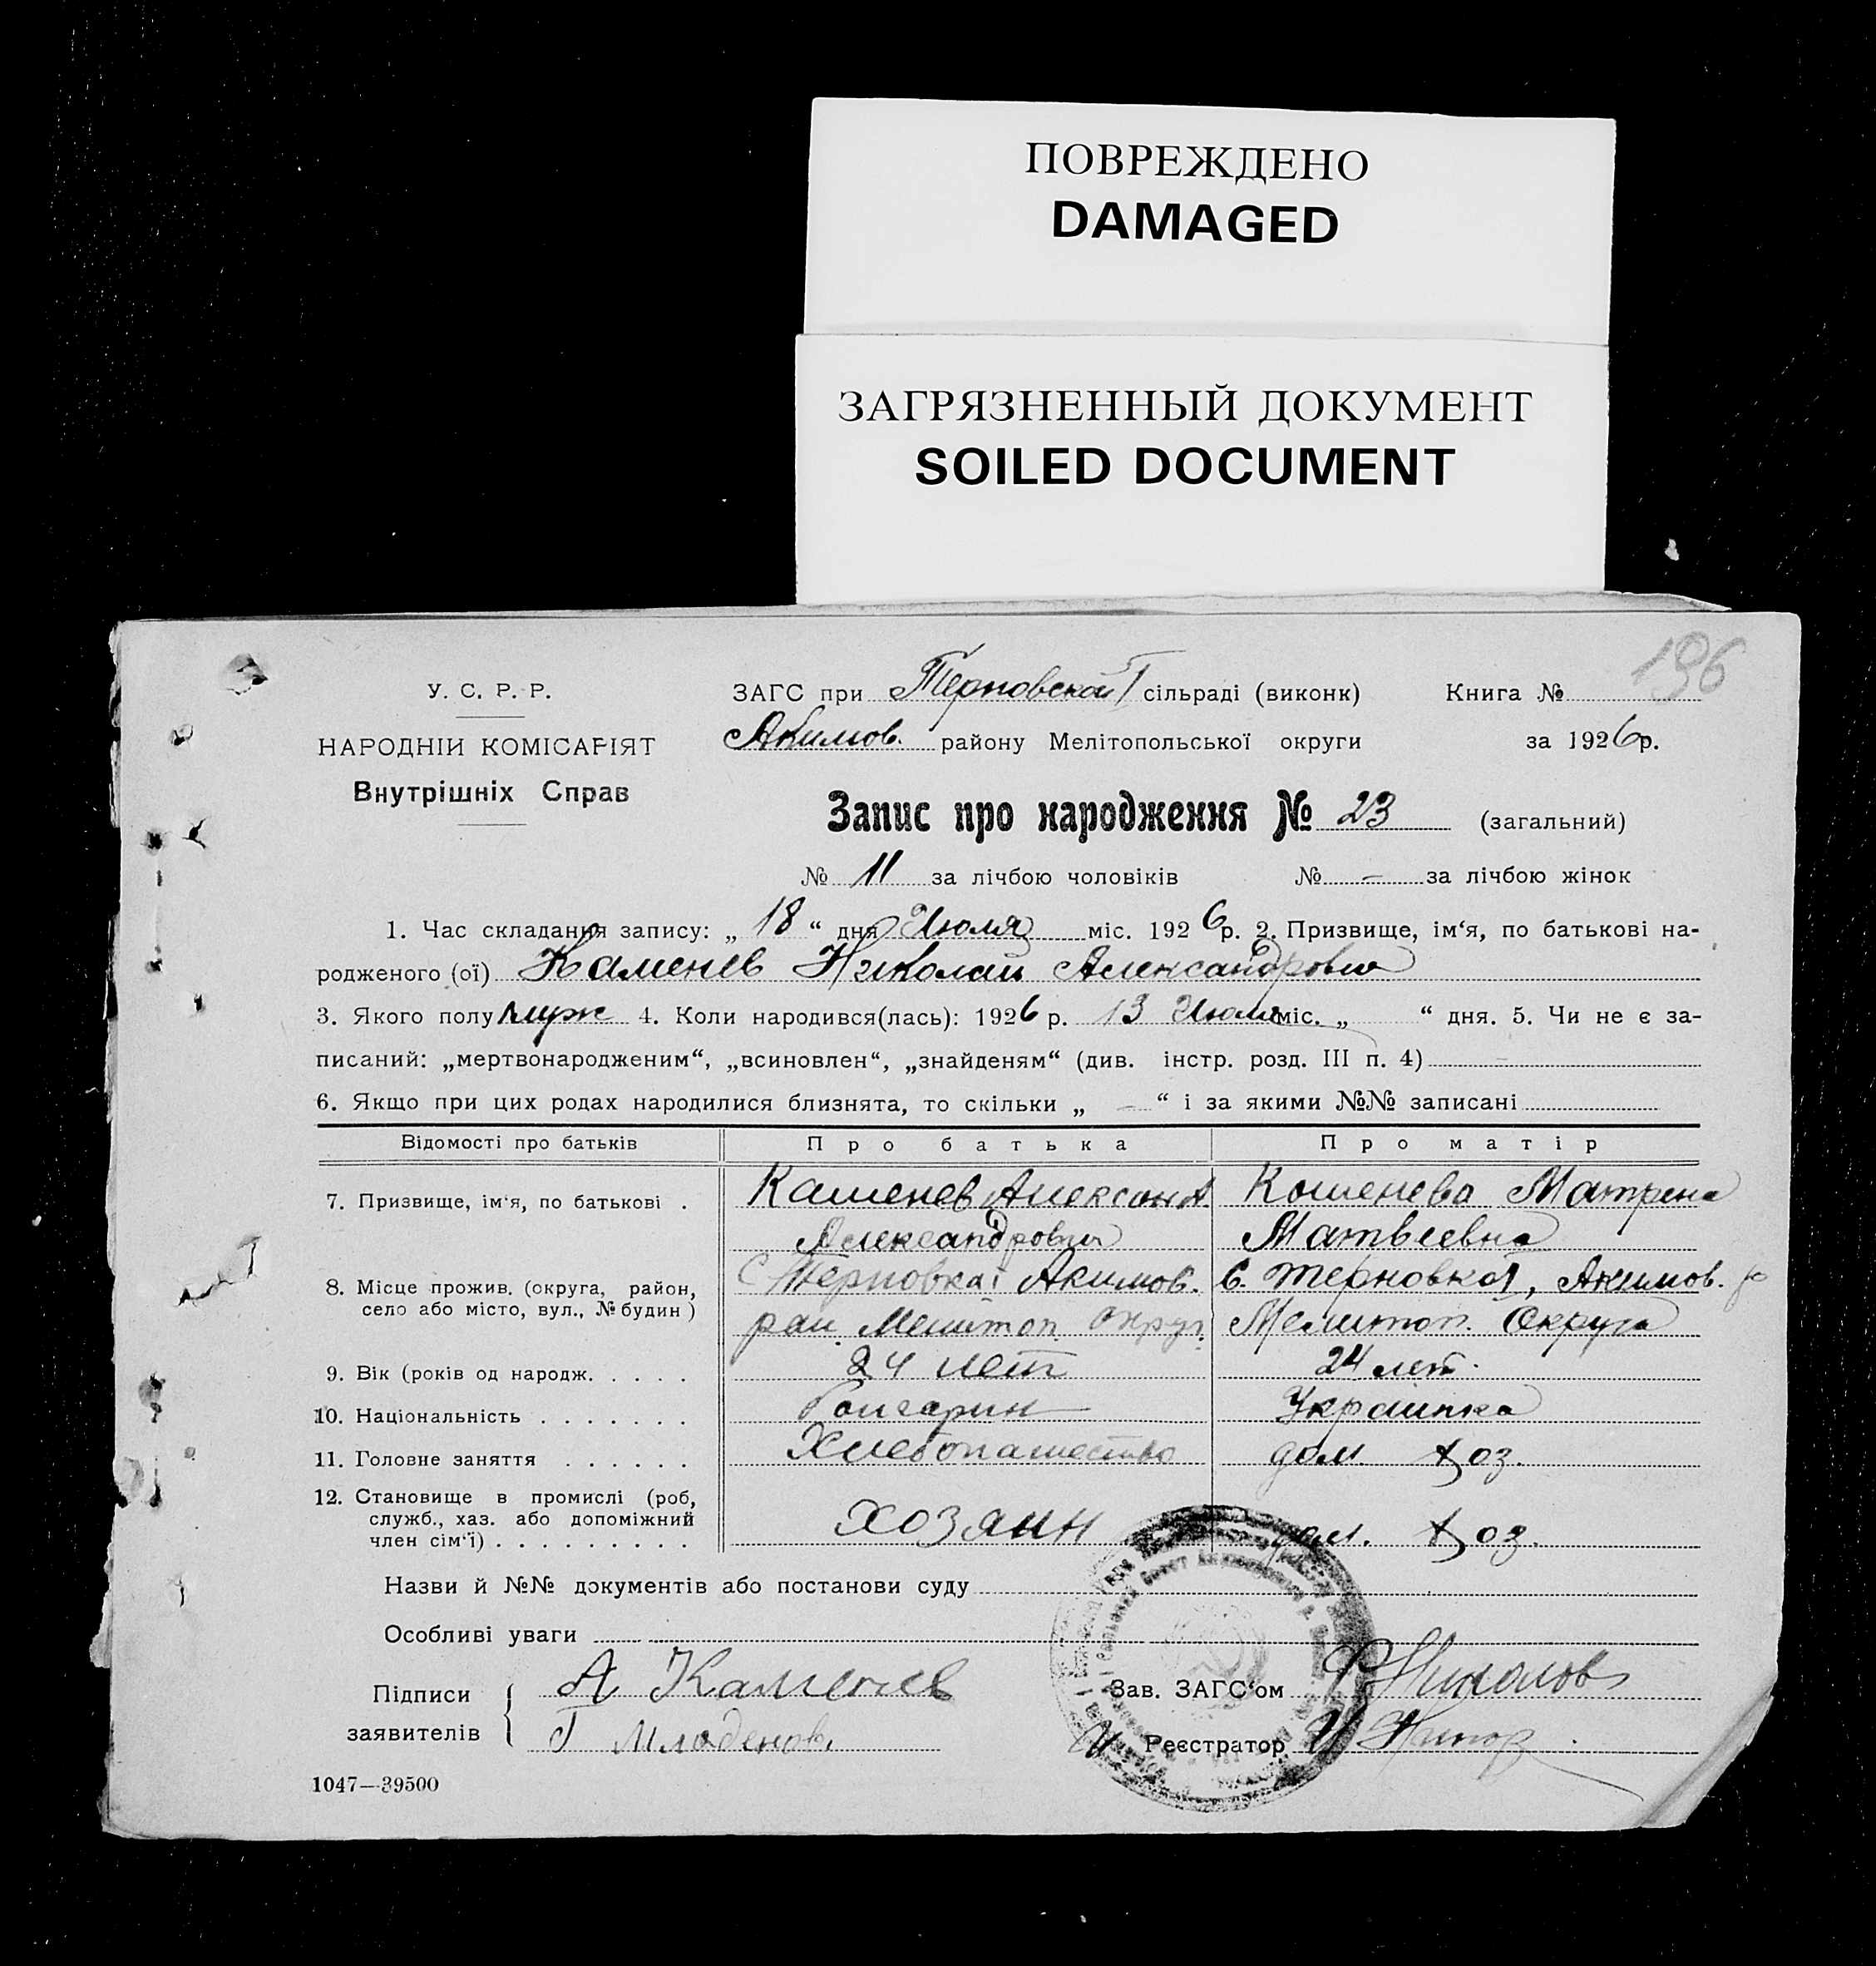 ПОВРЕЖДЕНО
DAMAGED
ЗАГРЯЗНЕННЫЙ ДОКУМЕНТ
SOILED DOCUMENT
196
У. С. Р. Р.
НАРОДНІЙ КОМІСАРІЯТ
Внутрішніх Справ
ЗАГС при Терновской I сільраді (виконк) Книга №
Акимов. району Мелітопольської округи за 1926 р.
Запис про народження № 23 (загальний)
№ 11 за лічбою чоловіків № — за лічбою жінок
1. Час складання запису: „ 18 “ дня Июля міс. 1926 р. 2. Призвище, ім‘я, по батькові на-
родженого (ої) Каменев Николай Александрович
3. Якого полу муж 4. Коли народився(лась): 1926 р. 13 Июля міс. „ “ дня. 5. Чи не є за-
писаний: „мертвонародженим“, „всиновлен“, „знайденям“ (див. інстр. розд. III п. 4) —
6. Якщо при цих родах народилися близнята, то скільки „ — “ і за якими №№ записані
Відомості про батьків Про батька Про матір
7. Призвище, ім‘я, по батькові . Каменев Александ. Каменева Матрена
Александрович Матвеевна
8. Місце прожив. (округа, район, с. Терновка I Акимов. с. Терновка I, Акимов.
село або місто, вул., № будин) рай. Мелитоп. Округ. Мелитоп. Округа
9. Вік (років од народж. . . . . 24 лет 24 лет.
10. Національність . . . . . . . Болгарин Украинка
11. Головне заняття . . . . . . Хлебопашество дом. хоз.
12. Становище в промислі (роб,
служб., хаз. або допоміжний хозяин дом. хоз.
член сім‘ї) . . . . . . . . .
Назви й №№ документів або постанови суду
Особливі уваги
Підписи А Каменев Зав. ЗАГС‘ом
заявителів Г Младенов. Реєстратор
1047—39500